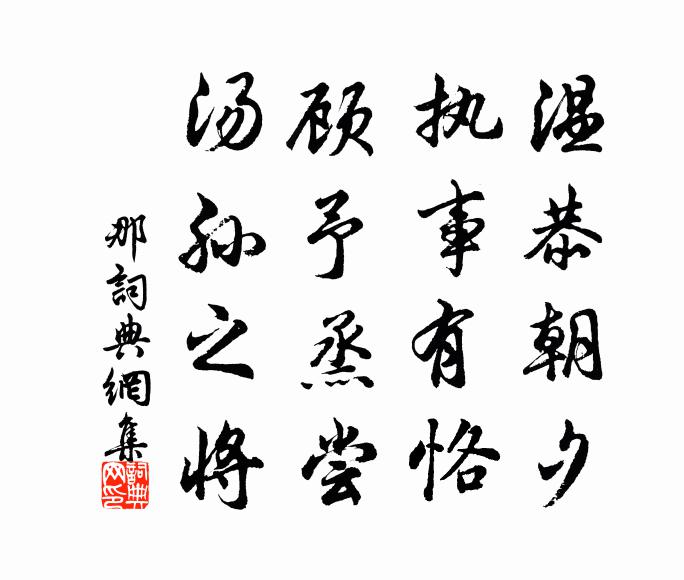 温恭朝夕
执事有恪
顾予烝尝
汤孙之将
那詞典網集
詞典网印